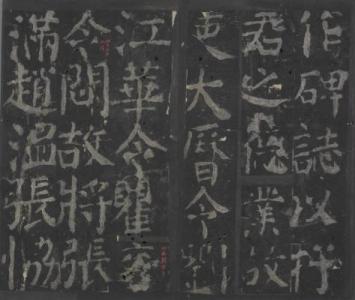 作碑誌以抒
君之德業故
吏大曆令劉
江華令瞿
令問故將張
滿趙溫張協